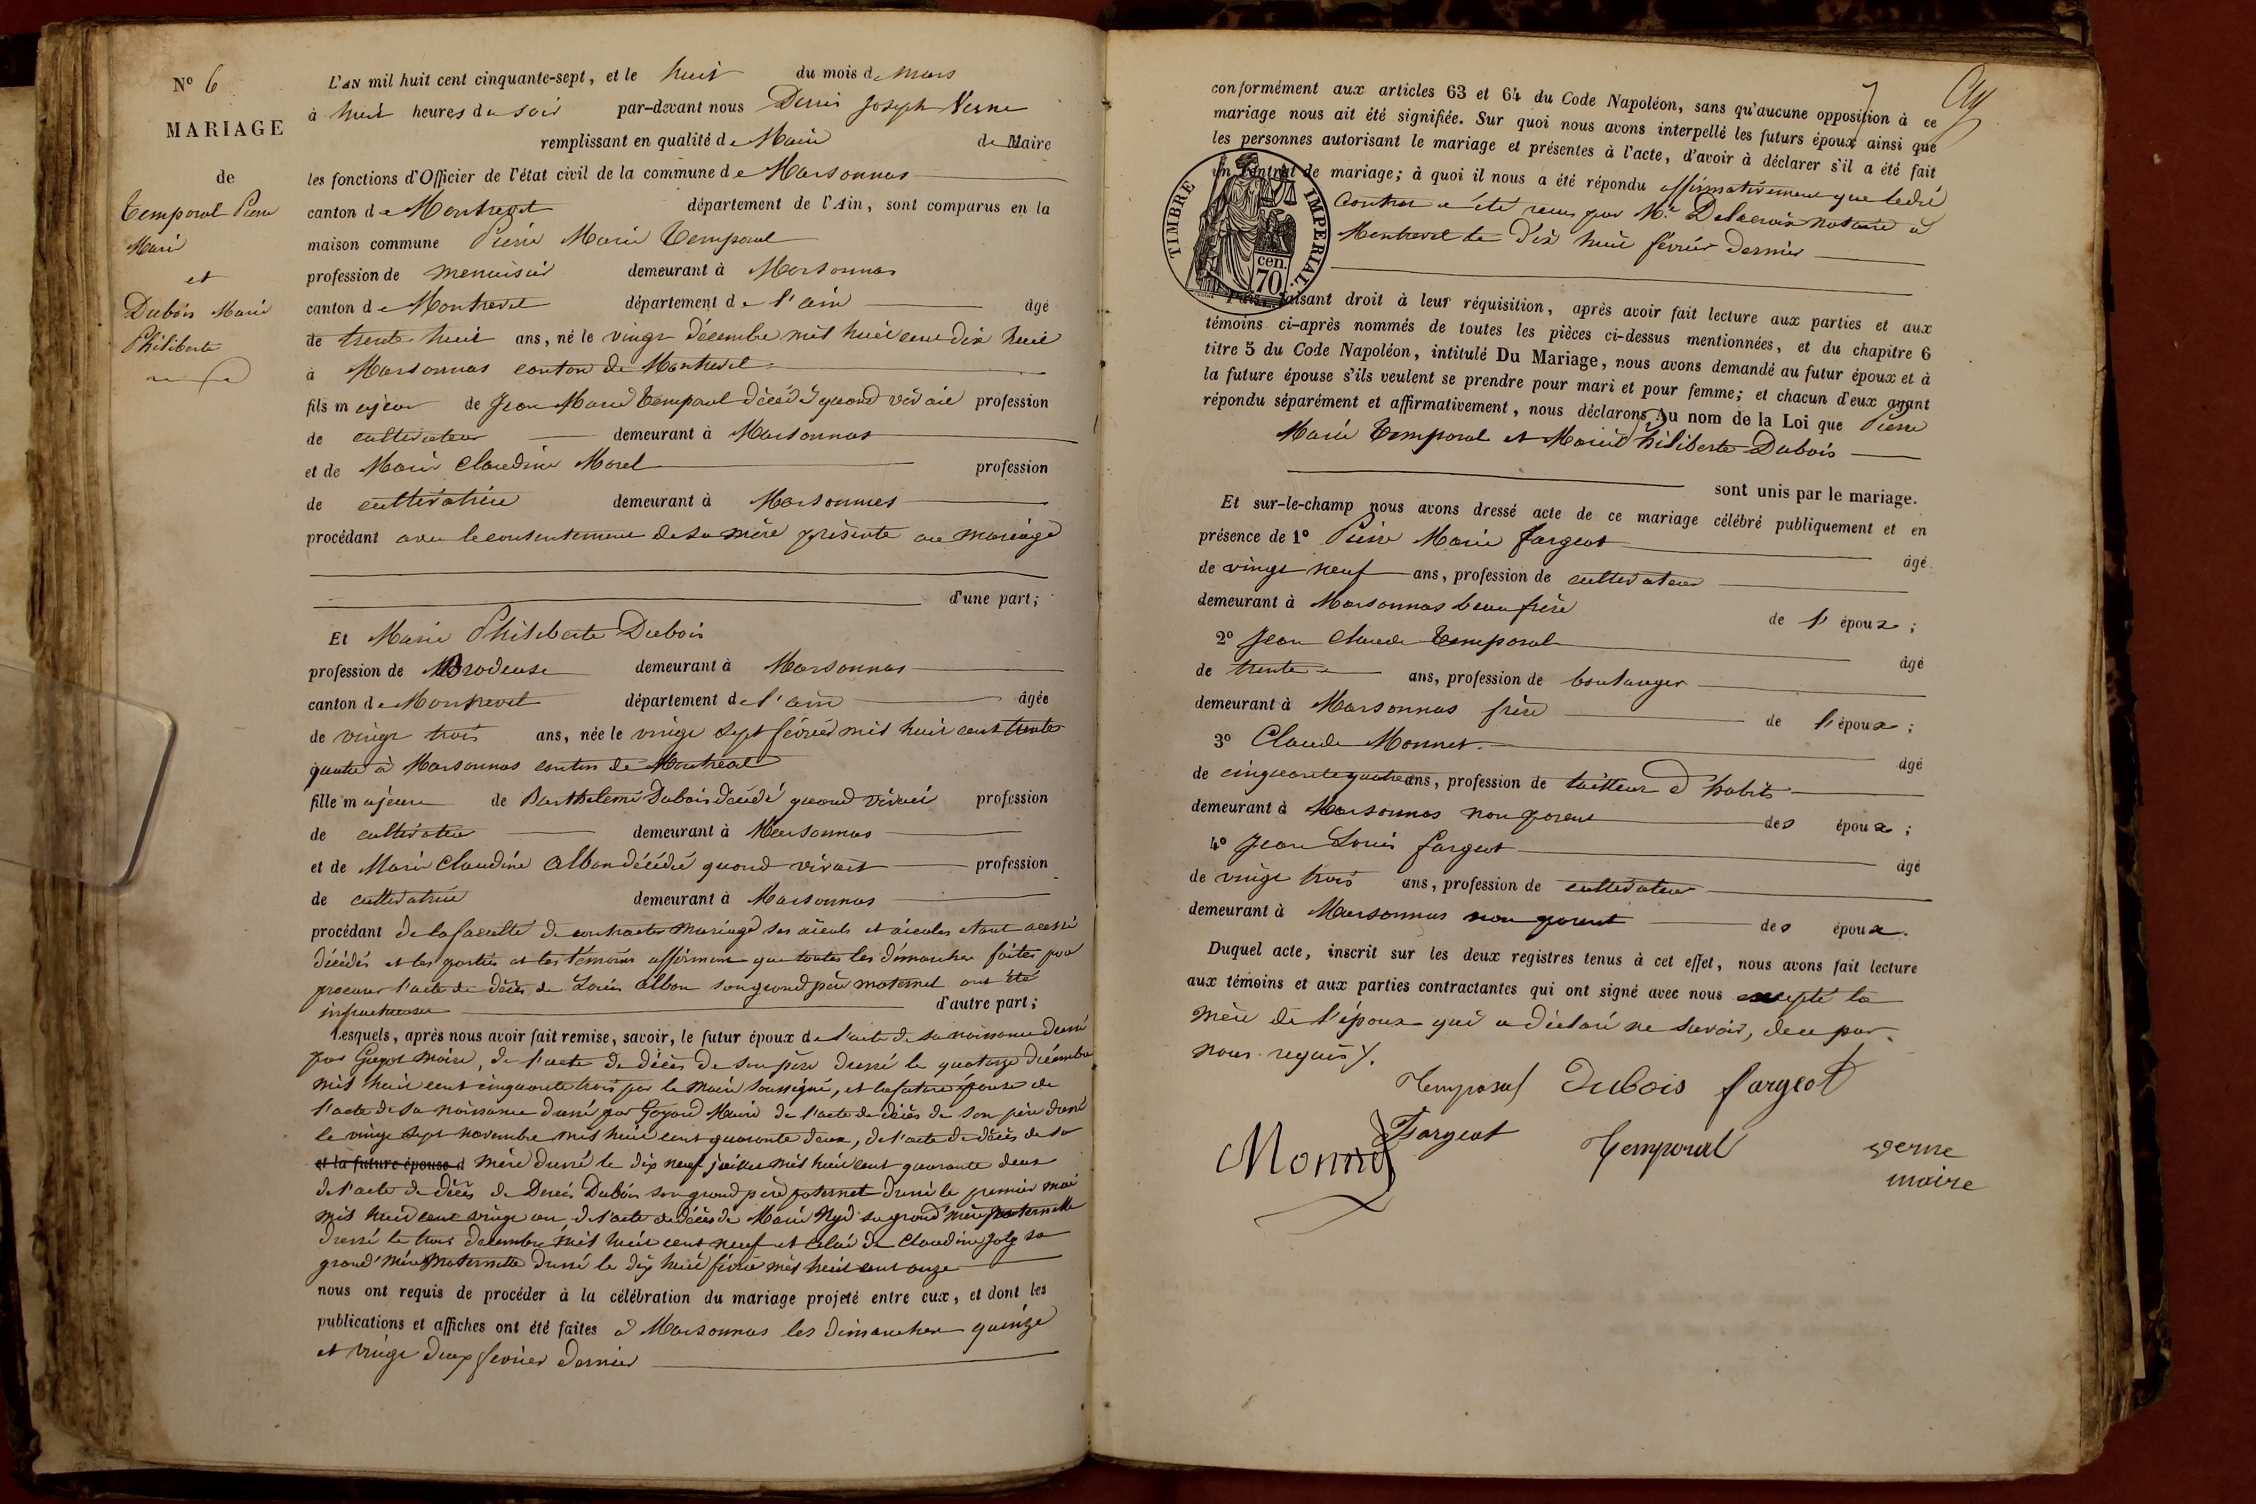 N° 6
MARIAGE
de
Temporal Pierre
Marie
et
Dubois Marie
Philiberte
L'AN mil huit cent cinquante-sept, et le huit du mois de Mars
à huit heures du soir par-devant nous Denis Joseph Verne
remplissant en qualité de Maire de Maire
les fonctions d'Officier de l'état civil de la commune de Marsonnas
canton de Montrevel département de l'Ain, sont comparus en la
maison commune Pierre Marie Temporal
profession de menuisier demeurant à Marsonnas
canton de Montrevel département de l'ain âgé
de trente huit ans, né le vingt décembre mil huit cent dix huit
à Marsonnas canton de Montrevel
fils majeur de Jean Marie Temporal décédé quand vivait profession
de cultivateur demeurant à Marsonnas
et de Marie Claudine Morel profession
de cultivatrice demeurant à Marsonnas
procédant avec le consentement de sa mère présente au mariage
d'une part;
Et Marie Philiberte Dubois
profession de Brodeuse demeurant à Marsonnas
canton de Montrevel département de l'ain âgée
de vingt trois ans, née le vingt sept février mil huit cent trente
quatre à Marsonnas canton de Montrevel
fille majeure de Barthelemi Dubois décédé quand vivait profession
de cultivateur demeurant à Marsonnas
et de Marie Claudine Albon décédé quand vivait profession
de cultivatrice demeurant à Marsonnas
procédant de la faculté de contracter mariage ses aïeuls et aïeules étant aussi
décédés et les parties et les témoins affirment que toutes les démarches faites pour
procurer l'acte de décès de Louis Albon son grand père maternel ont été
infructueuses d'autre part;
Lesquels, après nous avoir fait remise, savoir, le futur époux de l'acte de sa naissance dressé
par Guyot maire, de l'acte de décès de son père dressé le quatorze décembre
mil huit cent cinquante trois par le maire soussigné, et la future épouse de
l'acte de sa naissance dressé par Goyard Maire de l'acte de décès de son père dressé
le vingt sept novembre mil huit cent quarante deux, de l'acte de décès de sa
et la future épouse d mère dressé le dix neuf juillet mil huit cent quarante deux
de l'acte de décès de Denis Dubois son grand père paternel dressé le premier mai
mil huit cent vingt un de l'acte de décès de Marie sa grand'mère paternelle
dressé le trois décembre mil huit cent neuf et celui de Claudine sa
grand'mère maternelle dressé le dix huit février mil huit cent onze
nous ont requis de procéder à la célébration du mariage projeté entre eux, et dont les
publications et affiches ont été faites à Marsonnas les dimanches quinze
et vingt deux février dernier
conformément aux articles 63 et 64 du Code Napoléon, sans qu'aucune opposition à ce
mariage nous ait été signifiée. Sur quoi nous avons interpellé les futurs époux ainsi que
les personnes autorisant le mariage et présentes à l'acte, d'avoir à déclarer s'il a été fait
un contrat de mariage; à quoi il nous a été répondu affirmativement que ledit
Contrat a été reçu par Me Delacroix notaire à
Montrevel le dix huit février dernier
TIMBRE IMPERIAL.
cen.
70
Puis, faisant droit à leur réquisition, après avoir fait lecture aux parties et aux
témoins ci-après nommés de toutes les pièces ci-dessus mentionnées, et du chapitre 6
titre 5 du Code Napoléon, intitulé Du Mariage, nous avons demandé au futur époux et à
la future épouse s'ils veulent se prendre pour mari et pour femme; et chacun d'eux ayant
répondu séparément et affirmativement, nous déclarons Au nom de la Loi que Pierre
Marie Temporal et Marie Philiberte Dubois
sont unis par le mariage.
Et sur-le-champ nous avons dressé acte de ce mariage célébré publiquement et en
présence de 1° Pierre Marie Fargeot âgé
de vingt neuf ans, profession de cultivateur
demeurant à Marsonnas beau frère de l'époux;
2° Jean Claude Temporal âgé
de trente ans, profession de boulanger
demeurant à Marsonnas frère de l'époux;
3° Claude Monnet âgé
de cinquante quatre ans, profession de tailleur d'habits
demeurant à Marsonnas non parent des époux;
4° Jean Louis Fargeot âgé
de vingt trois ans, profession de cultivateur
demeurant à Marsonnas non parent des époux.
Duquel acte, inscrit sur les deux registres tenus à cet effet, nous avons fait lecture
aux témoins et aux parties contractantes qui ont signé avec nous excepté la
mère de l'époux qui a déclaré ne savoir, de ce par
nous requis.
Temporal Dubois fargeot
Monnet Fargeot Temporal verne
maire